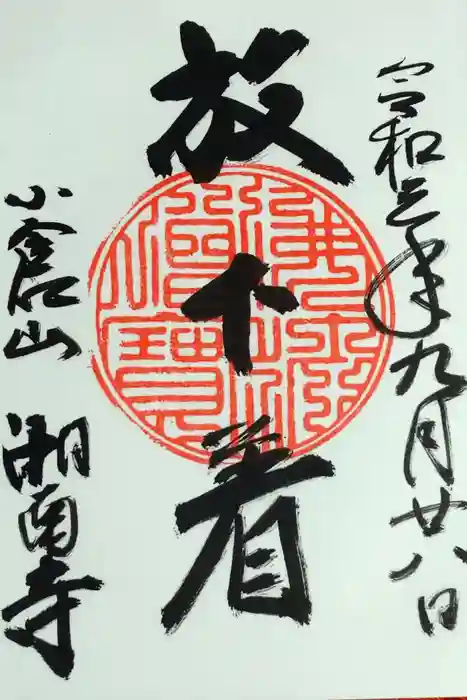 令和三年九月廿八日
放下着
小倉山 湘南寺